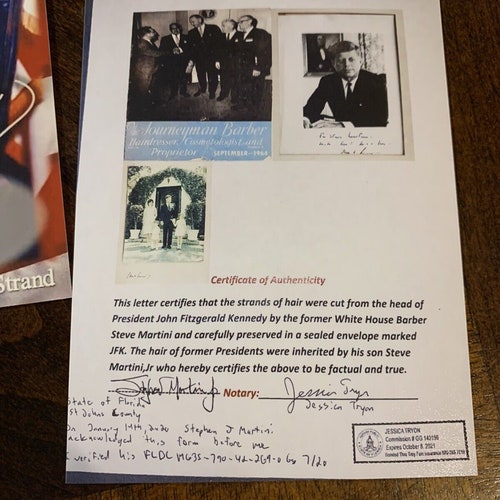 Journeyman Barber
Hairdresser, Cosmetologist and
Proprietor SEPTEMBER-1964
Strand
Certificate of Authenticity
This letter certifies that the strands of hair were cut from the head of
President John Fitzgerald Kennedy by the former White House Barber
Steve Martini and carefully preserved in a sealed envelope marked
JFK. The hair of former Presidents were inherited by his son Steve
Martini,Jr who hereby certifies the above to be factual and true.
Notary: Jessica Tryon
Jessica Tryon
State of Florida
St Johns County
On January 14th, 2020 Stephen J Martini
acknowledged this form before me
verified his FLDL
JESSICA TRYON
Commission # GG 143150
Expires October 8, 2021